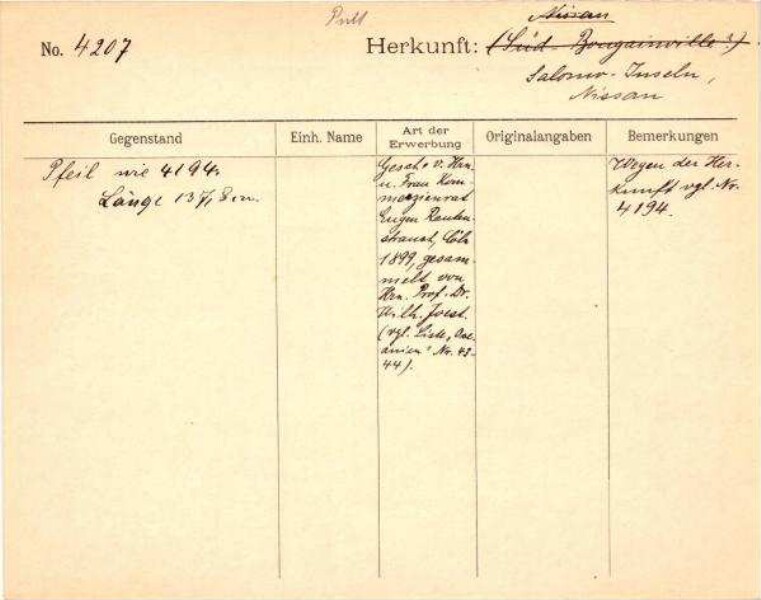 Pult
Nissan
No. 4207
Herkunft: (Süd-Bougainville?)
Salomo-Inseln,
Nissan
Gegenstand
Einh. Name
Art der
Erwerbung
Originalangaben
Bemerkungen
Pfeil wie 4194.
Länge 137,8 cm.
Gesch. v. Hrn.
u. Frau Kom-
merzienrat
Eugen Rauten-
strauch, Cöln
1899, gesam-
melt von
Hrn. Prof. Dr.
Wilh. Joest.
(vgl. Liste „Oce-
anien" Nr. 43-
44).
Wegen der Her-
kunft vgl. Nr.
4194.